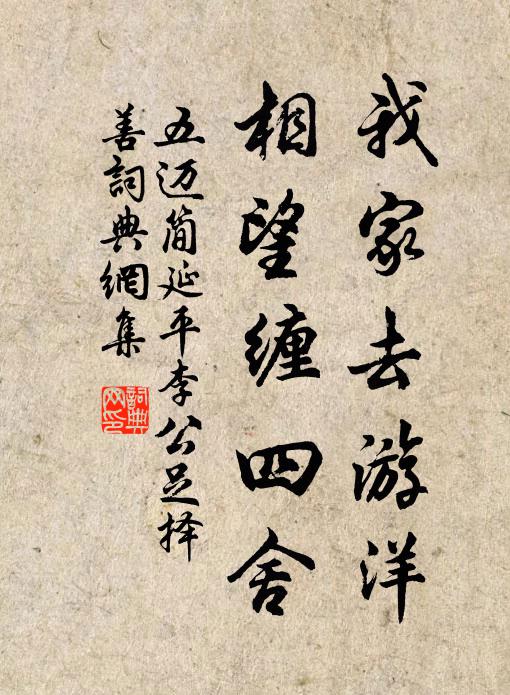 我家去游洋
相望缠四舍
五迈简延平李公足择
善詞典網集
詞典
网印